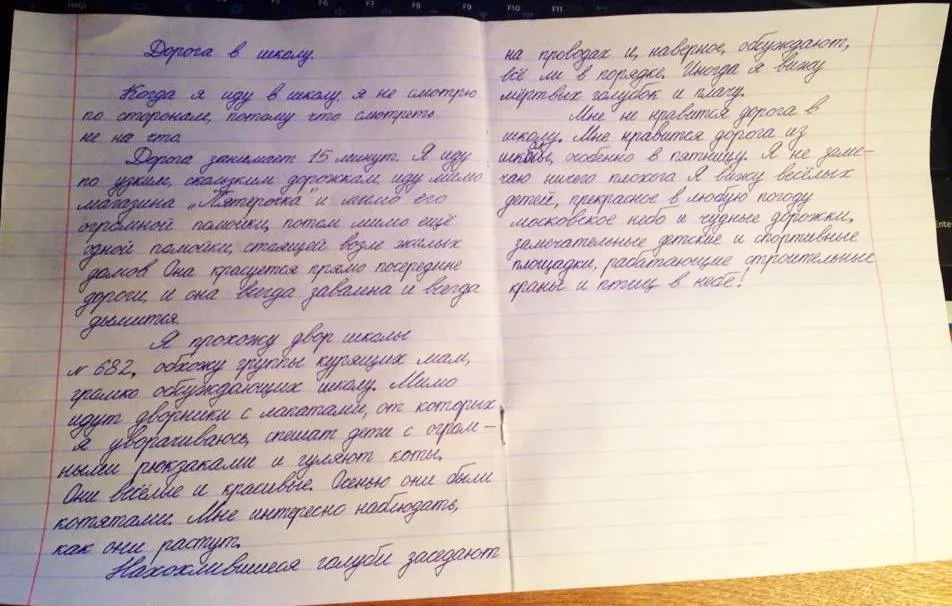 Дорога в школу.
Когда я иду в школу, я не смотрю
по сторонам, потому что смотреть
не на что.
Дорога занимает 15 минут. Я иду
по узким, скользким дорожкам, иду мимо
магазина „Пятёрочка" и мимо его
огромной помойки, потом мимо ещё
одной помойки, стоящей возле жилых
домов. Она красуется прямо посередине
дороги, и она всегда завалена и всегда
дымится.
Я прохожу двор школы
№ 682, обхожу группы курящих мам,
громко обсуждающих школу. Мимо
идут дворники с лапатами, от которых
я уворачиваюсь, спешат дети с огром-
ными рюкзаками и гуляют коты.
Они весёлые и красивые. Осенью они были
котятами. Мне интересно наблюдать,
как они растут.
Нахохлившиеся голуби заседают
на проводах и, наверное, обсуждают,
всё ли в порядке. Иногда я вижу
мёртвых голубок и плачу.
Мне не нравится дорога в
школу. Мне нравится дорога из
школы, особенно в пятницу. Я не заме-
чаю ничего плохога. Я вижу весёлых
детей, прекрасное в любую погоду
московское небо и чудные дорожки,
замечательные детские и спортивные
площадки, работающие строительных
краны и птиц в небе!
F6 F7 F8 F9 F10 F11
Enter